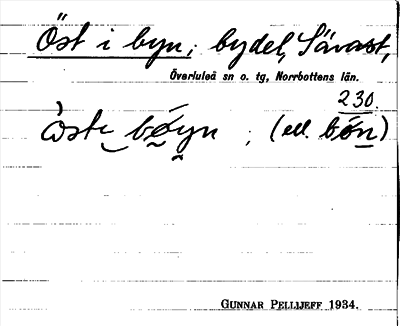 Öst i byn, bydel, Sävast,
Överluleå sn o. tg, Norrbottens län.
230.
òste bóyn ; (ell. bón)
GUNNAR PELLIJEFF 1934.